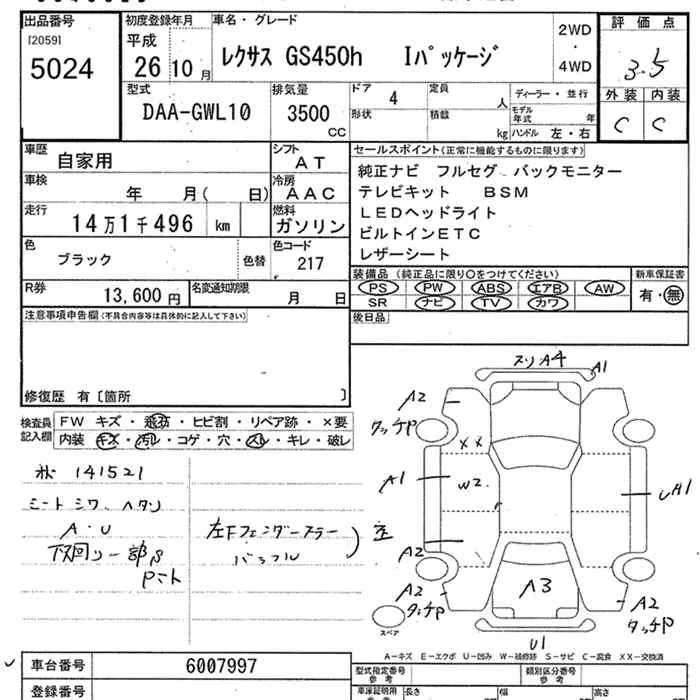 出品番号 初度登録年月 車名・グレード 評価点
[2059] 平成 2WD
5024 26 10月 レクサス GS450h Iパッケージ ・ 3.5
4WD
型式 排気量 ドア 定員 ディーラー・並行 外装 内装
DAA-GWL10 3500 CC 4 人 モデル年式 年 C C
形状 積載 kg ハンドル 左・右
車歴 自家用 シフト AT セールスポイント(正常に機能するものに限ります)
車検 年 月( 日) 冷房 AAC 純正ナビ フルセグ バックモニター
テレビキット BSM
走行 14万1千496 km 燃料 ガソリン LEDヘッドライト
ビルトインETC
色 ブラック 色替 色コード 217 レザーシート
装備品 (純正品に限り○をつけてください) 新車保証書
R券 13,600円 名変通知期限 月 日 PS PW ABS エアB AW 有・無
SR ナビ TV カワ
注意事項申告欄(不具合内容等は具体的に記入して下さい) 後日品
修復歴 有 [箇所 ]
検査員 FW キズ・飛石・ヒビ割・リペア跡・×要
記入欄 内装 キズ・汚レ・コゲ・穴・スレ・キレ・破レ
141521
シートシワ、ヘタリ
A・U
下廻り一部S
Pニート
左Fフェンダーライナー
スリA4 A1
A2
タッチP
XX
A1 W2 A1
A2
A2 A3 A2
タッチP タッチP
スペア U1
A-キズ E-エクボ U-凹み W-補修跡 S-サビ C-腐食 XX-交換済
車台番号 6007997 型式指定番号 参考 類別区分番号 参考
登録番号 車庫証明用 参考 長さ 幅 高さ